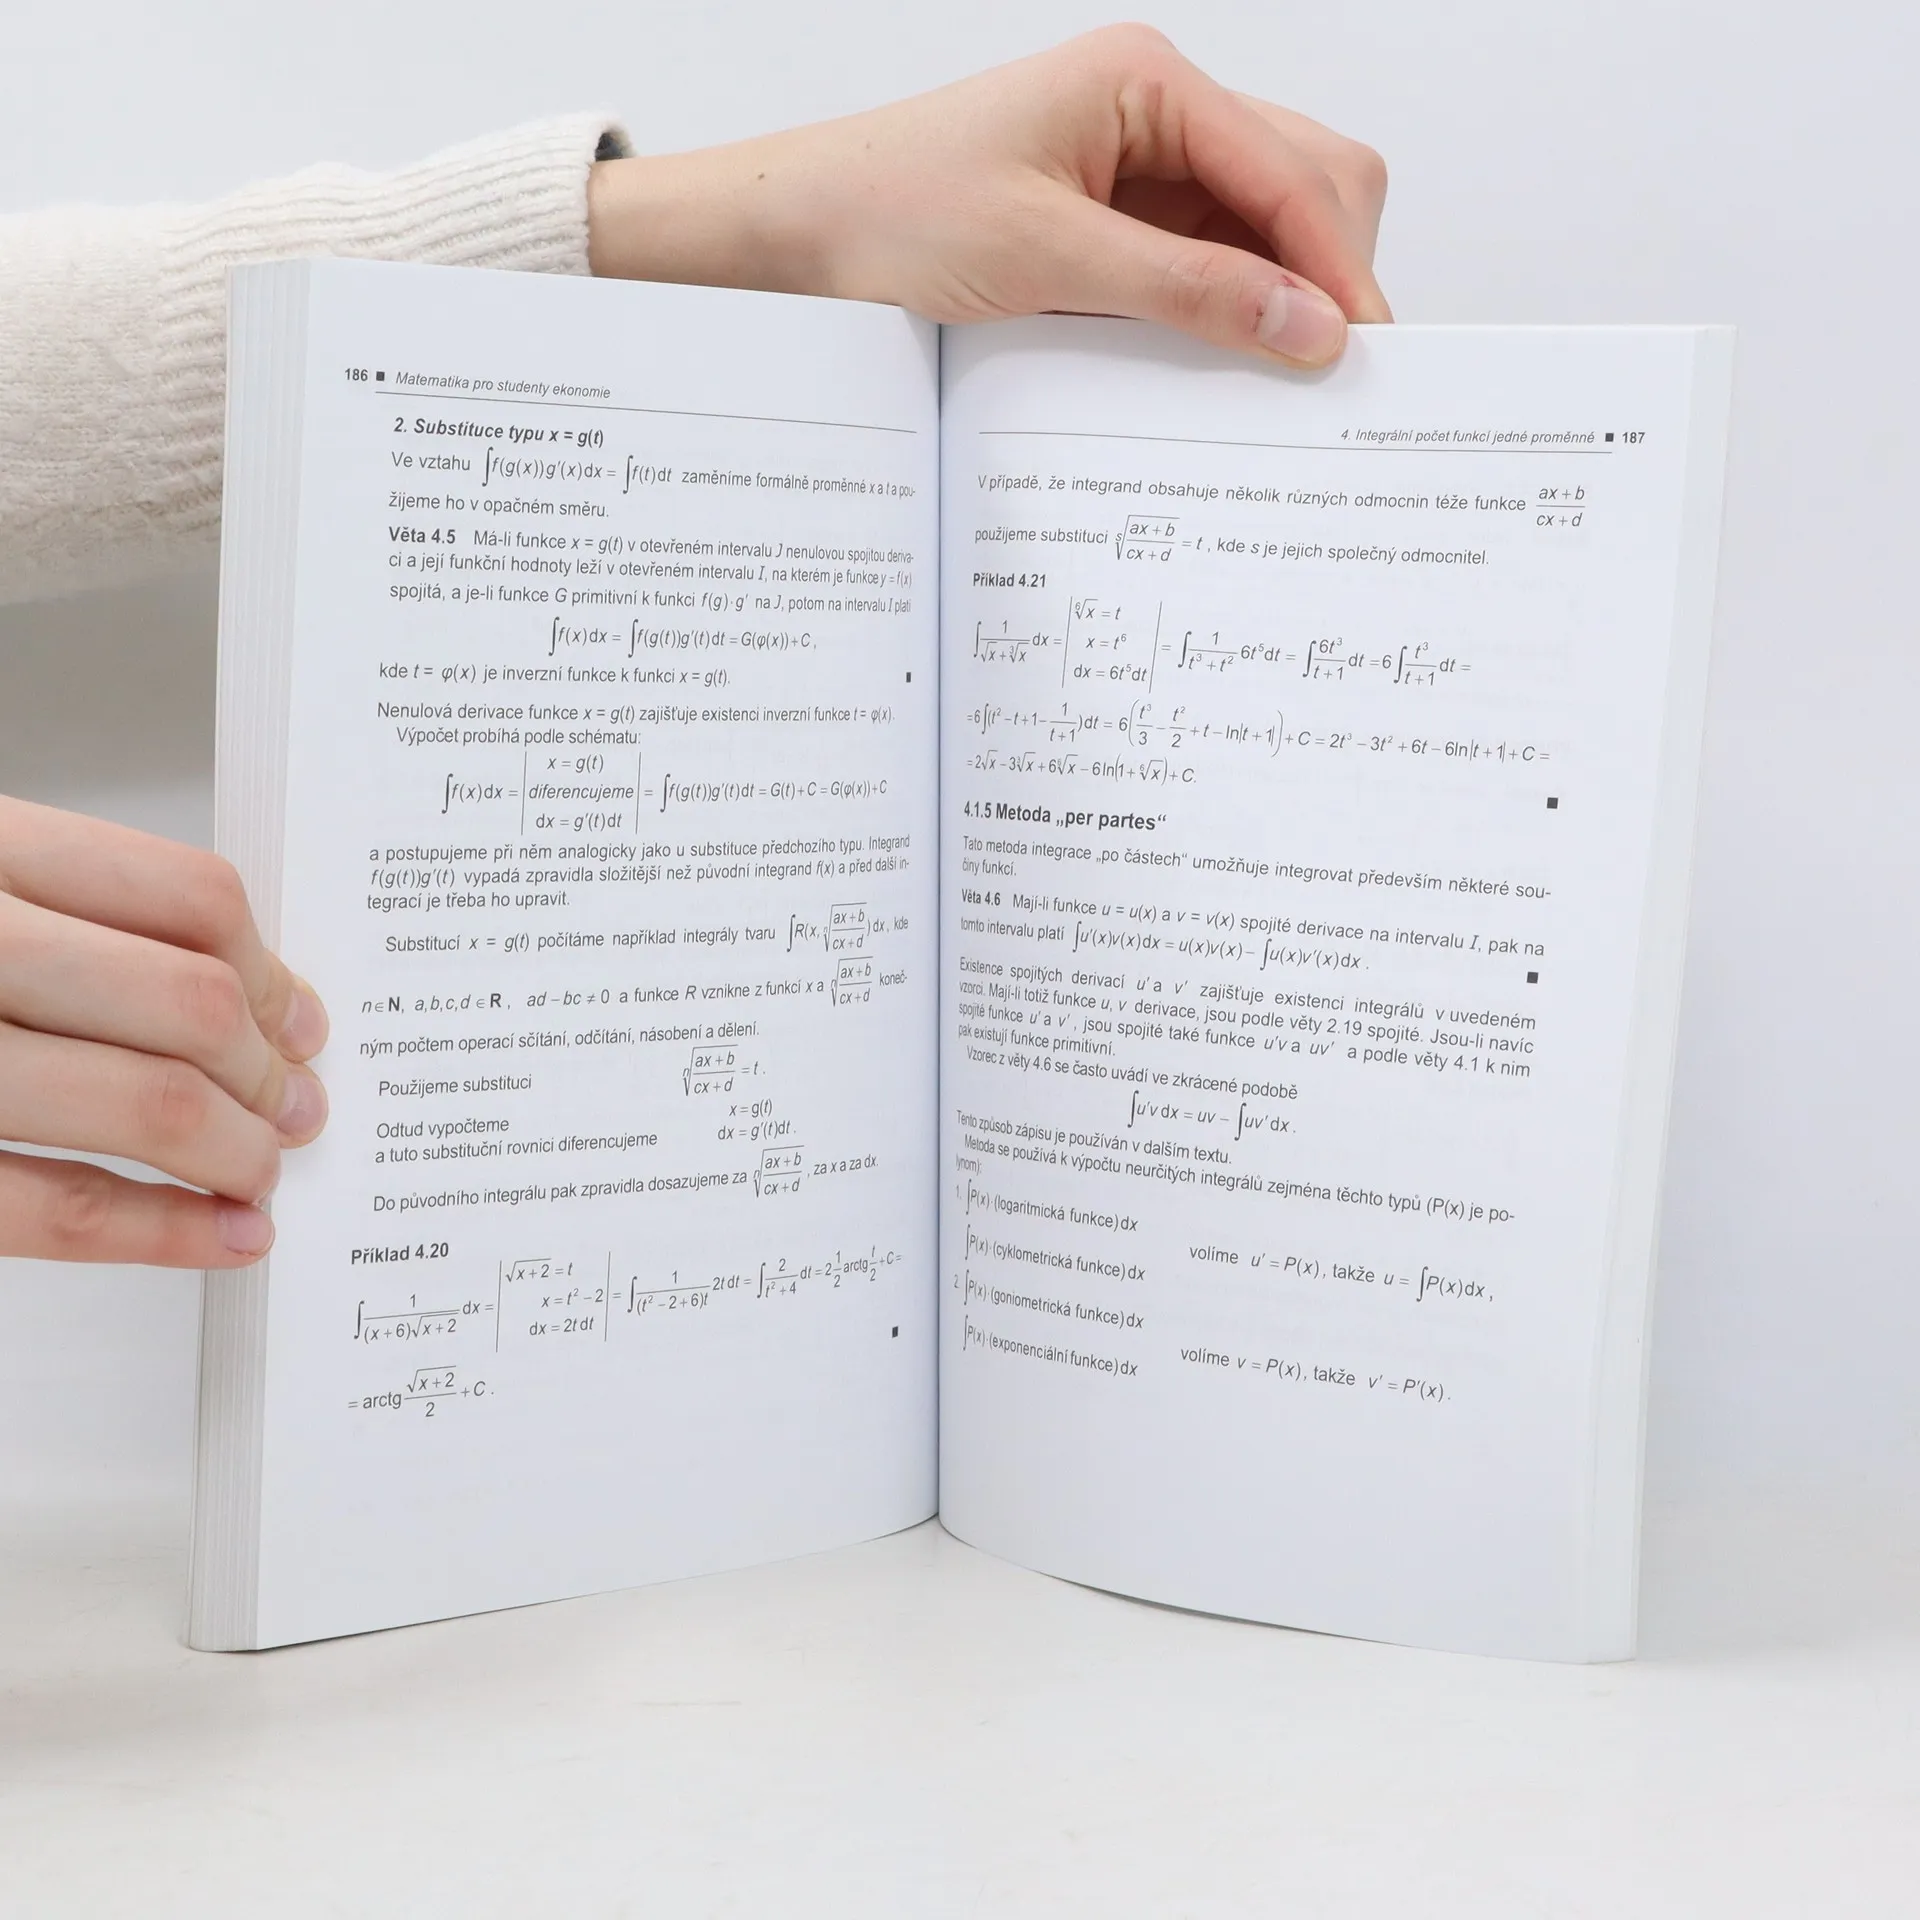 186 ■ Matematika pro studenty ekonomie
2. Substituce typu x = g(t)
Ve vztahu ∫f(g(x))g′(x)dx = ∫f(t)dt zaměníme formálně proměnné x a t a pou-
žijeme ho v opačném směru.
Věta 4.5 Má-li funkce x = g(t) v otevřeném intervalu J nenulovou spojitou deriva-
ci a její funkční hodnoty leží v otevřeném intervalu I, na kterém je funkce y = f(x)
spojitá, a je-li funkce G primitivní k funkci f(g)·g′ na J, potom na intervalu I platí
∫f(x)dx = ∫f(g(t))g′(t)dt = G(φ(x))+C,
kde t = φ(x) je inverzní funkce k funkci x = g(t). ■
Nenulová derivace funkce x = g(t) zajišťuje existenci inverzní funkce t = φ(x).
Výpočet probíhá podle schématu:
∫f(x)dx = | x = g(t) | diferencujeme | dx = g′(t)dt | = ∫f(g(t))g′(t)dt = G(t)+C = G(φ(x))+C
a postupujeme při něm analogicky jako u substituce předchozího typu. Integrand
f(g(t))g′(t) vypadá zpravidla složitější než původní integrand f(x) a před další in-
tegrací je třeba ho upravit.
Substitucí x = g(t) počítáme například integrály tvaru ∫R(x, ⁿ√((ax+b)/(cx+d)))dx, kde
n∈N, a,b,c,d∈R, ad – bc ≠ 0 a funkce R vznikne z funkcí x a ⁿ√((ax+b)/(cx+d)) koneč-
ným počtem operací sčítání, odčítání, násobení a dělení.
Použijeme substituci ⁿ√((ax+b)/(cx+d)) = t.
Odtud vypočteme x = g(t)
a tuto substituční rovnici diferencujeme dx = g′(t)dt.
Do původního integrálu pak zpravidla dosazujeme za ⁿ√((ax+b)/(cx+d)), za x a za dx.
Příklad 4.20
∫1/((x+6)√(x+2)) dx = | √(x+2) = t | x = t² – 2 | dx = 2t dt | = ∫1/((t² – 2+6)t) 2t dt = ∫2/(t²+4) dt = 2 1/2 arctg t/2 +C =
= arctg √(x+2)/2 + C. ■
4. Integrální počet funkcí jedné proměnné ■ 187
V případě, že integrand obsahuje několik různých odmocnin téže funkce (ax+b)/(cx+d)
použijeme substituci ˢ√((ax+b)/(cx+d)) = t, kde s je jejich společný odmocnitel.
Příklad 4.21
∫1/(√x+³√x) dx = | ⁶√x = t | x = t⁶ | dx = 6t⁵dt | = ∫1/(t³+t²) 6t⁵dt = ∫6t³/(t+1) dt = 6∫t³/(t+1) dt =
=6∫(t² – t+1– 1/(t+1))dt = 6(t³/3 – t²/2 + t – ln|t+1|)+C = 2t³ – 3t² + 6t – 6ln|t+1|+C =
= 2√x – 3³√x + 6⁶√x – 6ln(1+⁶√x)+C. ■
4.1.5 Metoda „per partes“
Tato metoda integrace „po částech“ umožňuje integrovat především některé sou-
činy funkcí.
Věta 4.6 Mají-li funkce u = u(x) a v = v(x) spojité derivace na intervalu I, pak na
tomto intervalu platí ∫u′(x)v(x)dx = u(x)v(x) – ∫u(x)v′(x)dx. ■
Existence spojitých derivací u′ a v′ zajišťuje existenci integrálů v uvedeném
vzorci. Mají-li totiž funkce u, v derivace, jsou podle věty 2.19 spojité. Jsou-li navíc
spojité funkce u′ a v′, jsou spojité také funkce u′v a uv′ a podle věty 4.1 k nim
pak existují funkce primitivní.
Vzorec z věty 4.6 se často uvádí ve zkrácené podobě
∫u′v dx = uv – ∫uv′dx.
Tento způsob zápisu je používán v dalším textu.
Metoda se používá k výpočtu neurčitých integrálů zejména těchto typů (P(x) je po-
lynom):
1. ∫P(x)·(logaritmická funkce)dx
∫P(x)·(cyklometrická funkce)dx volíme u′ = P(x), takže u = ∫P(x)dx,
2. ∫P(x)·(goniometrická funkce)dx
∫P(x)·(exponenciální funkce)dx volíme v = P(x), takže v′ = P′(x).